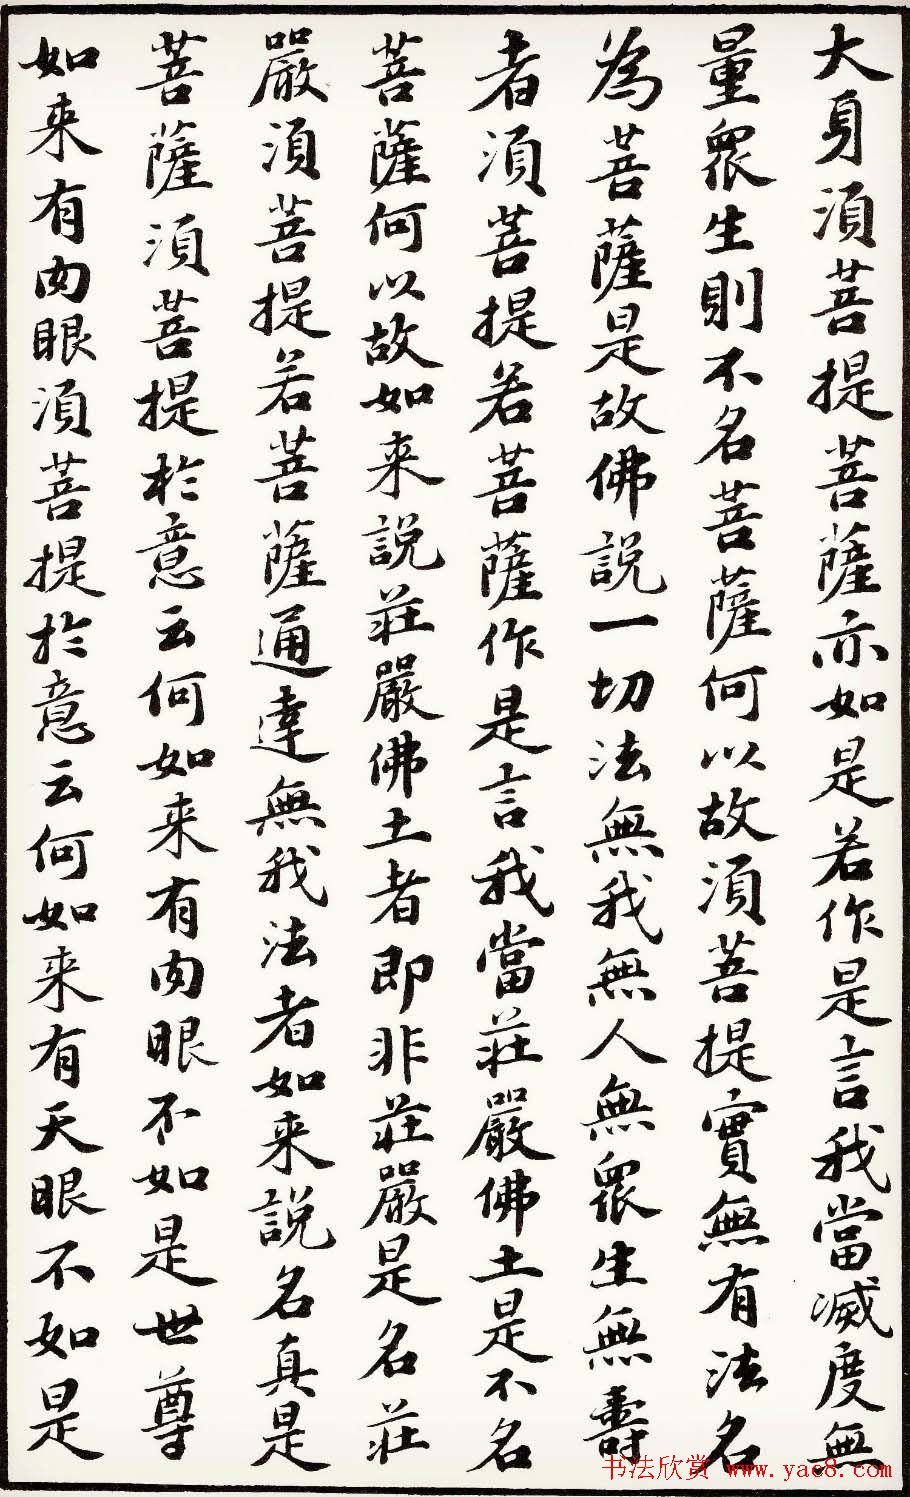 大身須菩提菩薩亦如是若作是言我當滅度無
量眾生則不名菩薩何以故須菩提實無有法名
為菩薩是故佛說一切法無我無人無眾生無壽
者須菩提若菩薩作是言我當莊嚴佛土是不名
菩薩何以故如来說莊嚴佛土者即非莊嚴是名莊
嚴須菩提若菩薩通達無我法者如来說名真是
菩薩須菩提於意云何如来有肉眼不如是世尊
如来有肉眼須菩提於意云何如来有天眼不如是
书法欣赏 www.yac8.com